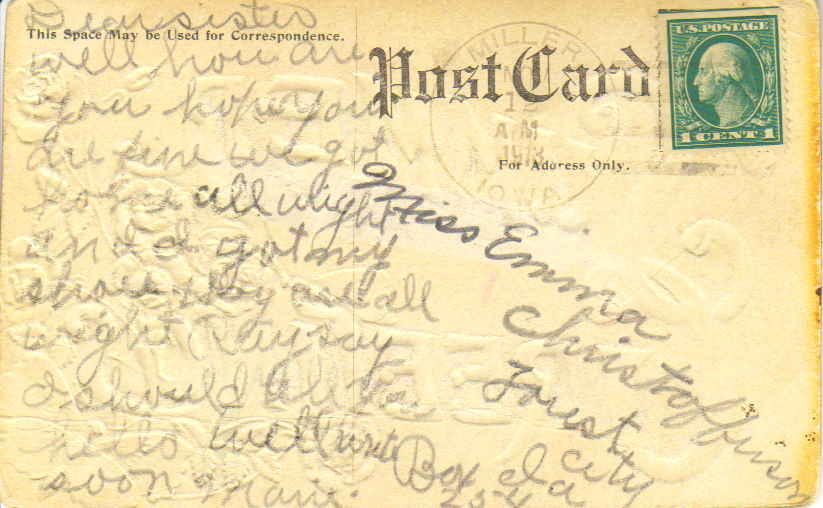 Dear sister
This Space May be Used for Correspondence.
well how are
you hope you
are fine we got
home all wright
and I got my
shoes they are all
wright Ray say
I should
hello well write
soon Mari.
Post Card
For Address Only.
MILLER
12
AM
1913
IOWA
U.S. POSTAGE
1 CENT 1
Miss Emma
Christofferson
Forest
City
Box Ia
254